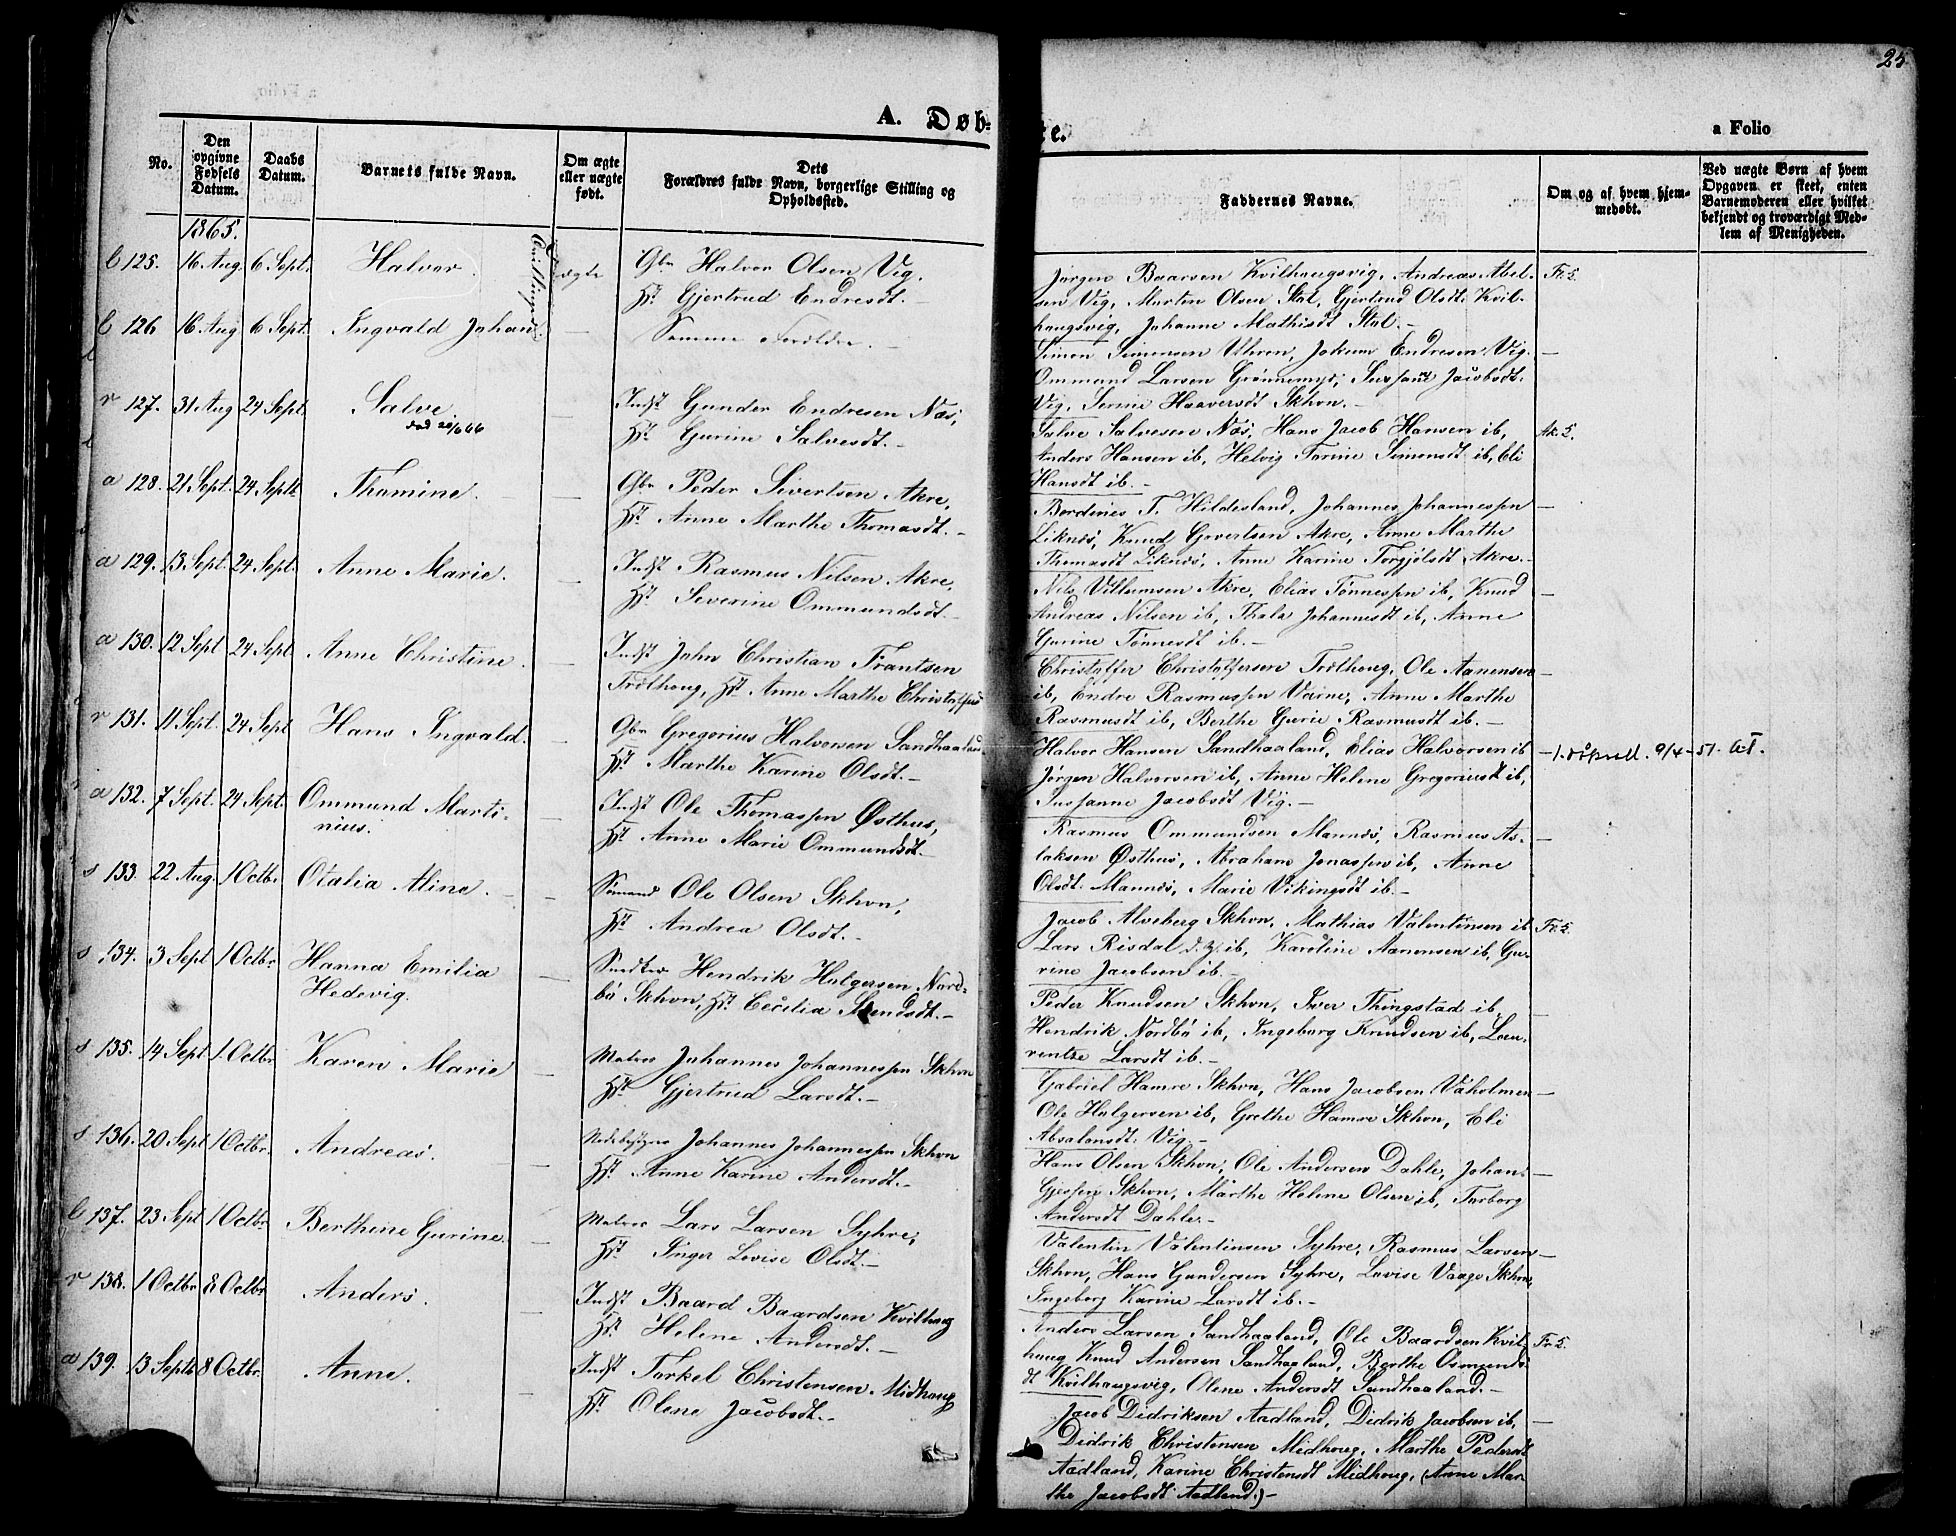 25
A. Døb=
te.
a Folio
No.
Den opgivne Fødsels Datum.
Daabs Datum.
Barnets fulde Navn.
Om ægte eller uægte født.
Dets Forældres fulde Navn, borgerlige Stilling og Opholdssted.
Faddernes Navne.
Om og af hvem hjem-
medøbt.
Ved uægte Børn af hvem
Opgaven er skeet, enten
Barnemoderen eller hvilket
bekjendt og troværdigt Med-
lem af Menigheden.
1865.
b 125. 16 Aug. 6 Sept. Halvor. Tvillinger ægte Gbr Halvor Olsen Vig,
Hst. Gjertrud Endresdt.-
Jørgen Baarsen Kvilhaugsvig, Andreas Abel-
sen Vig, Marten Olsen Stol, Gjertrud Olsdt. Kvil-
haugsvig, Johanne Mathisdt Stol.-
b 126 16 Aug 6 Sept. Ingvald Johan - Samme Forældre.-
Simon Simonsen Utheren, Jokum Endresen Vig.
Ommund Larsen Grønnemyr, Susanne Jacobsdt.
Vig, Serine Haaversdt Skhvn.-
r 127. 31 Aug 24 Sept. Salve.
død 20/6 66
Indst Gunder Endresen Næs,
Hst. Gurine Salvesdt.-
Salve Salvesen Næs, Hans Jacob Hansen ib,
Anders Hansen ib, Helvig Tarine Simonsdt ib, Eli
Hansdt ib.-
a 128. 21 Sept. 24 Septb Thomine. - Gbr Peder Sivertsen Akre,
Hst. Anne Marthe Thomasdt.-
Bordinus T. Hildesland, Johannes Johannessen
Liknæs, Knud Govertsen Akre, Anne Marthe
Thomasdt Liknæs, Anne Karine Torgjilsdt Akre.-
a 129. 13 Sept. 24 Sept. Anne Marie. - Indst Rasmus Nilsen Akre,
Hst. Severine Ommundsdt.-
Nils Villumsen Akre, Elias Tønnessen ib, Knud
Andreas Nilsen ib, Thala Johannesdt ib, Anne
Gurine Tønnesdt ib.-
a 130. 12 Sept 24 Sept Anne Christine. - Indst John Christian Frantsen
Trælhoug, Hst Anne Marthe
Christoffer Christoffersen Trælhoug, Ole Aanensen
ib, Endre Rasmussen Varne, Anne Marthe
Rasmusdt ib, Berthe Gurie Rasmusdt ib.-
r 131. 11 Sept. 24 Sept Hans Ingvald. - Gbr Gregorius Halvorsen Sandhaaland
Hst. Marthe Karine Olsdt.-
Halvor Hansen Sandhaaland, Elias Halvorsen ib
Jørgen Halvorsen ib, Anne Helene Gregoriusdt ib,
Susanne Jacobsdt Vig.-
9/4-51. A.T.
a 132. 7 Sept. 24 Sept. Ommund Marti-
nius. - Indst Ole Thomassen Østhus,
Hst. Anne Marie Ommundsdt.-
Rasmus Ommundsen Mannæs, Rasmus As-
laksen Østhus, Abraham Jonassen ib, Anne
Olsdt. Mannæs, Marie Vikingsdt ib.-
s 133. 22 Aug. 1 Octbr. Otalia Aline. - Sømand Ole Olsen Skhvn,
Hst Andrea Olsdt.-
Jacob Alveberg Skhvn, Mathias Valentinsen ib
Lars Risdal d.y. ib, Karoline Aanensen ib, Gu-
rine Jacobsen ib.-
s 134. 3 Sept 1 Octbr. Hanna Emilia
Hedevig. - Snedker Hendrik Holgersen Nord-
bø Skhvn, Hst. Cecilia Svendsdt.-
Peder Knudsen Skhvn, Iver Thingstad ib,
Hendrik Nordbø ib, Ingeborg Knudsen ib, Lau-
rentze Larsdt ib.-
s 135. 14 Sept 1 Octbr. Karen Marie - Matros Johannes Johannessen Skhvn
Hst. Gjertrud Larsdt.-
Gabriel Hamre Skhvn, Hans Jacobsen Vaholmen
Ole Holgersen ib, Grethe Hamre Skhvn, Eli
Absalonsdt. Vig.-
s 136. 20 Sept 1 Octbr. Andreas. - Johannes Johannessen Skhvn
Hst. Anne Karine Andersdt.-
Hans Olsen Skhvn, Ole Andersen Dahle, Johan
Gjessen Skhvn, Marthe Helene Olsen ib, Torborg
Andersdt Dahle.-
b 137. 23 Sept 1 Octbr. Berthine Gurine. - Matros Lars Larsen Syhre,
Hst. Inger Lovise Olsdt.-
Valentin Valentinsen Syhre, Rasmus Larsen
Skhvn, Hans Gundersen Syhre, Lovise Vaage Skhvn,
Ingeborg Karine Larsdt ib.-
r 138. 1 Octbr 8 Octbr. Anders. - Indst Baard Baardsen Kvilhaug
Hst. Helene Andersdt.-
Anders Larsen Sandhaaland, Ole Baardsen Kvil-
haug Knud Andersen Sandhaaland, Berthe Osmunds-
dt Kvilhaugsvig, Olene Andersdt Sandhaaland.-
a 139. 13 Septb 8 Octbr. Anne. - Indst Torkel Christensen Midhaug
Hst. Olene Jacobsdt.-
Jacob Didriksen Aadland, Didrik Jacobsen ib,
Didrik Christensen Midhoug, Marthe Pedersdt
Aadland, Karine Christensdt Midhoug, (Anne Mar-
the Jacobsdt Aadland.)-